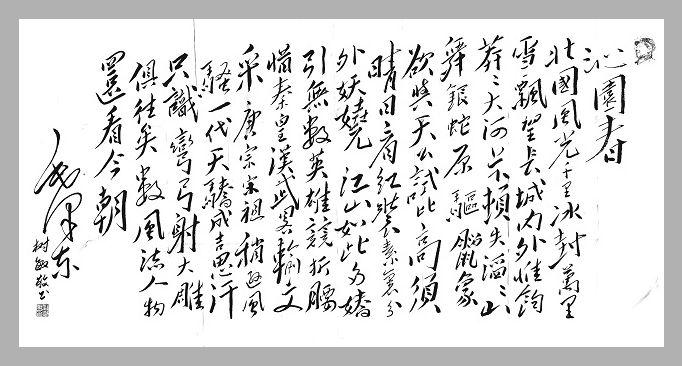 沁園春
北國風光千里冰封萬里
雪飄望長城内外惟餘
莽々大河上下頓失滔々山
舞銀蛇原驅臘象
欲與天公試比高須
晴日看紅裝素裹分
外妖嬈江山如此多嬌
引無數英雄競折腰
惜秦皇漢武略輸文
采唐宗宋祖稍遜風
騷一代天驕成吉思汗
只識彎弓射大雕
俱往矣數風流人物
還看今朝
毛澤東
树敏敬书